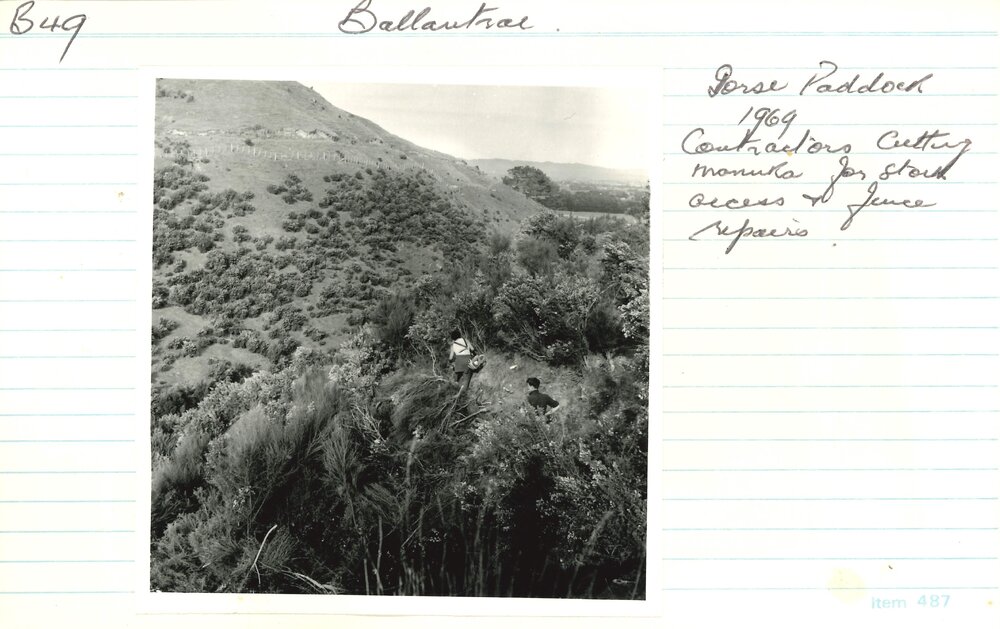 B49
Ballantrae.
Gorse Paddock
1969
Contractors Cutting
manuka for stock
access & fence
repairs.
Item 487